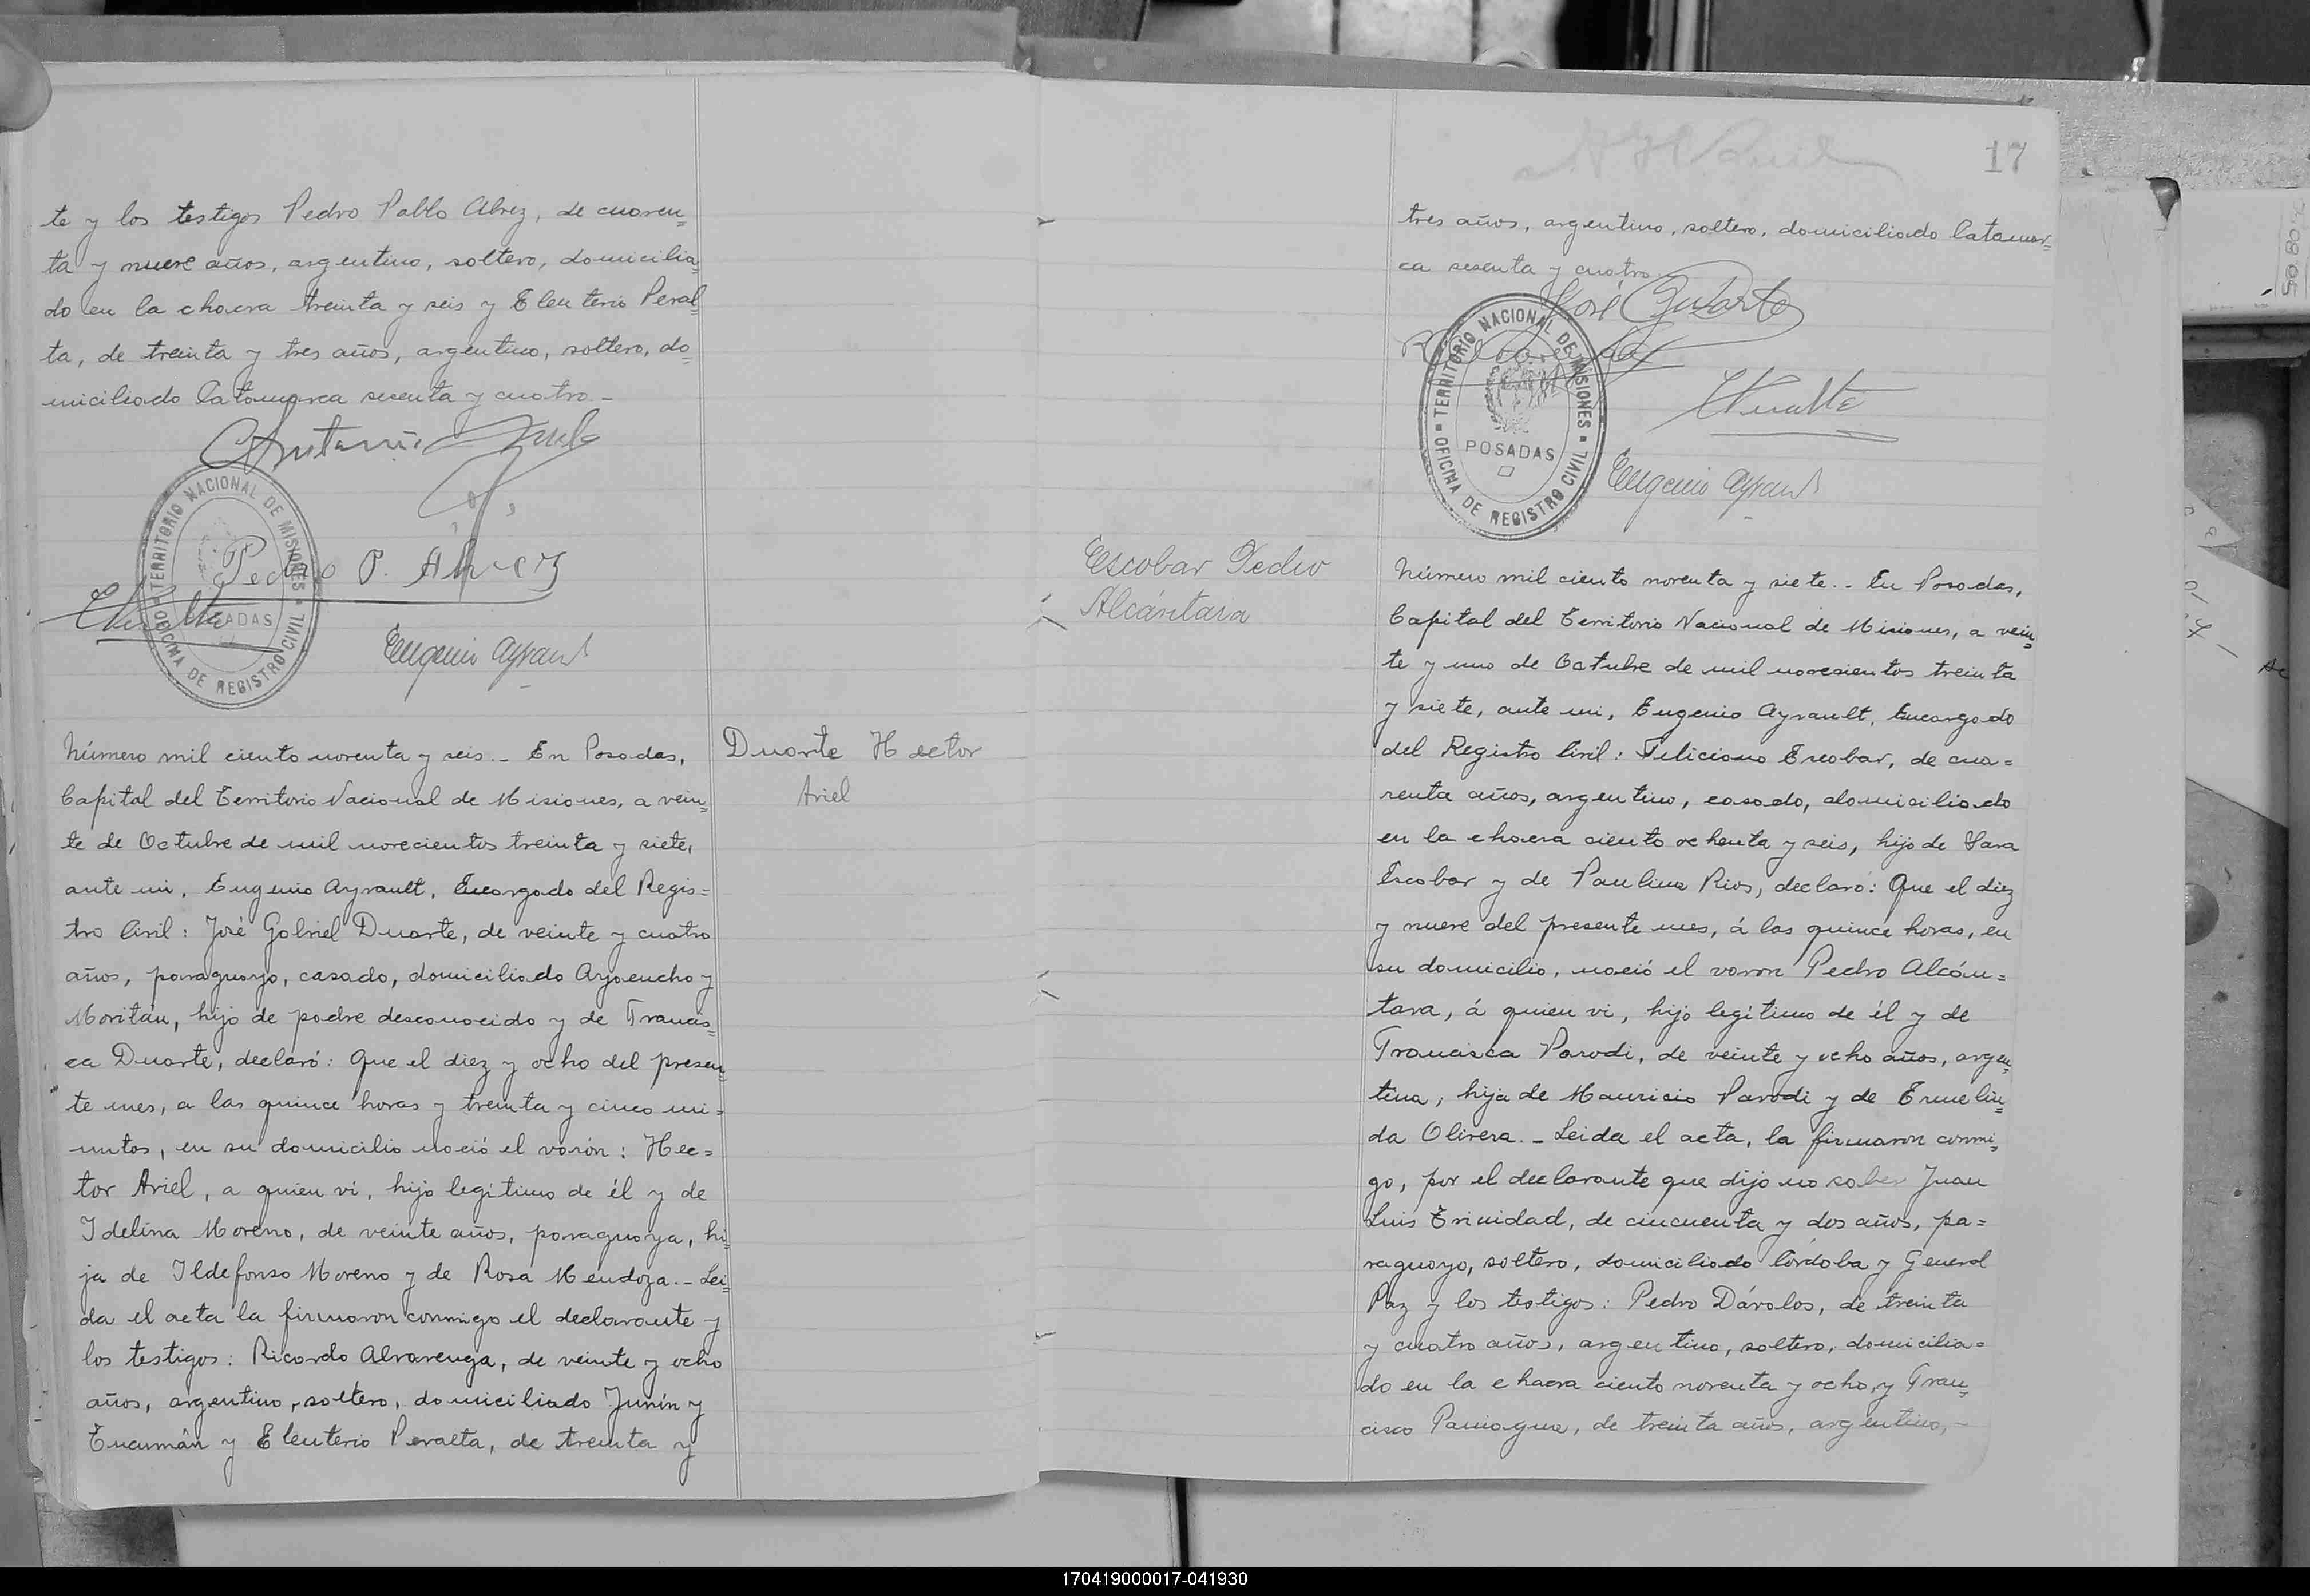 te y los testigos Pedro Pablo Alvez, de cuaren=
ta y nueve años, argentino, soltero, domicilia=
do en la chacra treinta y seis y Eleuterio Peral=
ta, de treinta y tres años, argentino, soltero, do=
miciliado Catamarca sesenta y cuatro.-
Antonio
Pedro P. Alvez
TERRITORIO NACIONAL DE MISIONES
OFICINA DE REGISTRO CIVIL
POSADAS
Eugenio Ayrault
Número mil ciento noventa y seis.- En Posadas,
Capital del Territorio Nacional de Misiones, a vein=
te de Octubre de mil novecientos treinta y siete,
ante mi, Eugenio Ayrault, Encargado del Regis=
tro Civil: José Gabriel Duarte, de veinte y cuatro
años, paraguayo, casado, domiciliado Ayacucho y
Moritán, hijo de padre desconocido y de Francis=
ca Duarte, declaró: Que el diez y ocho del presen=
te mes, a las quince horas y treinta y cinco mi=
nutos, en su domicilio nació el varón: Hec=
tor Ariel, a quien ví, hijo legítimo de él y de
Idelina Moreno, de veinte años, paraguaya, hi=
ja de Ildefonso Moreno y de Rosa Mendoza.- Lei=
da el acta la firmaron conmigo el declarante y
los testigos: Ricardo Alvarenga, de veinte y ocho
años, argentino, soltero, domiciliado Junín y
Tucumán y Eleuterio Peralta, de treinta y
Duarte Hector
Ariel
17
tres años, argentino, soltero, domiciliado Catamar=
ca sesenta y cuatro.
José Duarte
TERRITORIO NACIONAL DE MISIONES
OFICINA DE REGISTRO CIVIL
POSADAS
Eugenio Ayrault
Escobar Pedro
Alcántara
Número mil ciento noventa y siete.- En Posadas,
Capital del Territorio Nacional de Misiones, a vein=
te y uno de Octubre de mil novecientos treinta
y siete, ante mi, Eugenio Ayrault, Encargado
del Registro Civil: Feliciano Escobar, de cua=
renta años, argentino, casado, domiciliado
en la chacra ciento ochenta y seis, hijo de Sara
Escobar y de Paulino Rios, declaró: Que el diez
y nueve del presente mes, á las quince horas, en
su domicilio, nació el varon Pedro Alcán=
tara, á quien vi, hijo legítimo de él y de
Francisca Parodi, de veinte y ocho años, argen=
tina, hija de Mauricio Parodi y de Ermelin=
da Olivera.- Leida el acta, la firmaron conmi=
go, por el declarante que dijo no saber Juan
Luis Trinidad, de cincuenta y dos años, pa=
raguayo, soltero, domiciliado Córdoba y General
Paz y los testigos: Pedro Dávalos, de treinta
y cuatro años, argentino, soltero, domicilia=
do en la chacra ciento noventa y ocho, y Fran=
cisco Paniagua, de treinta años, argentino,-
170419000017-041930